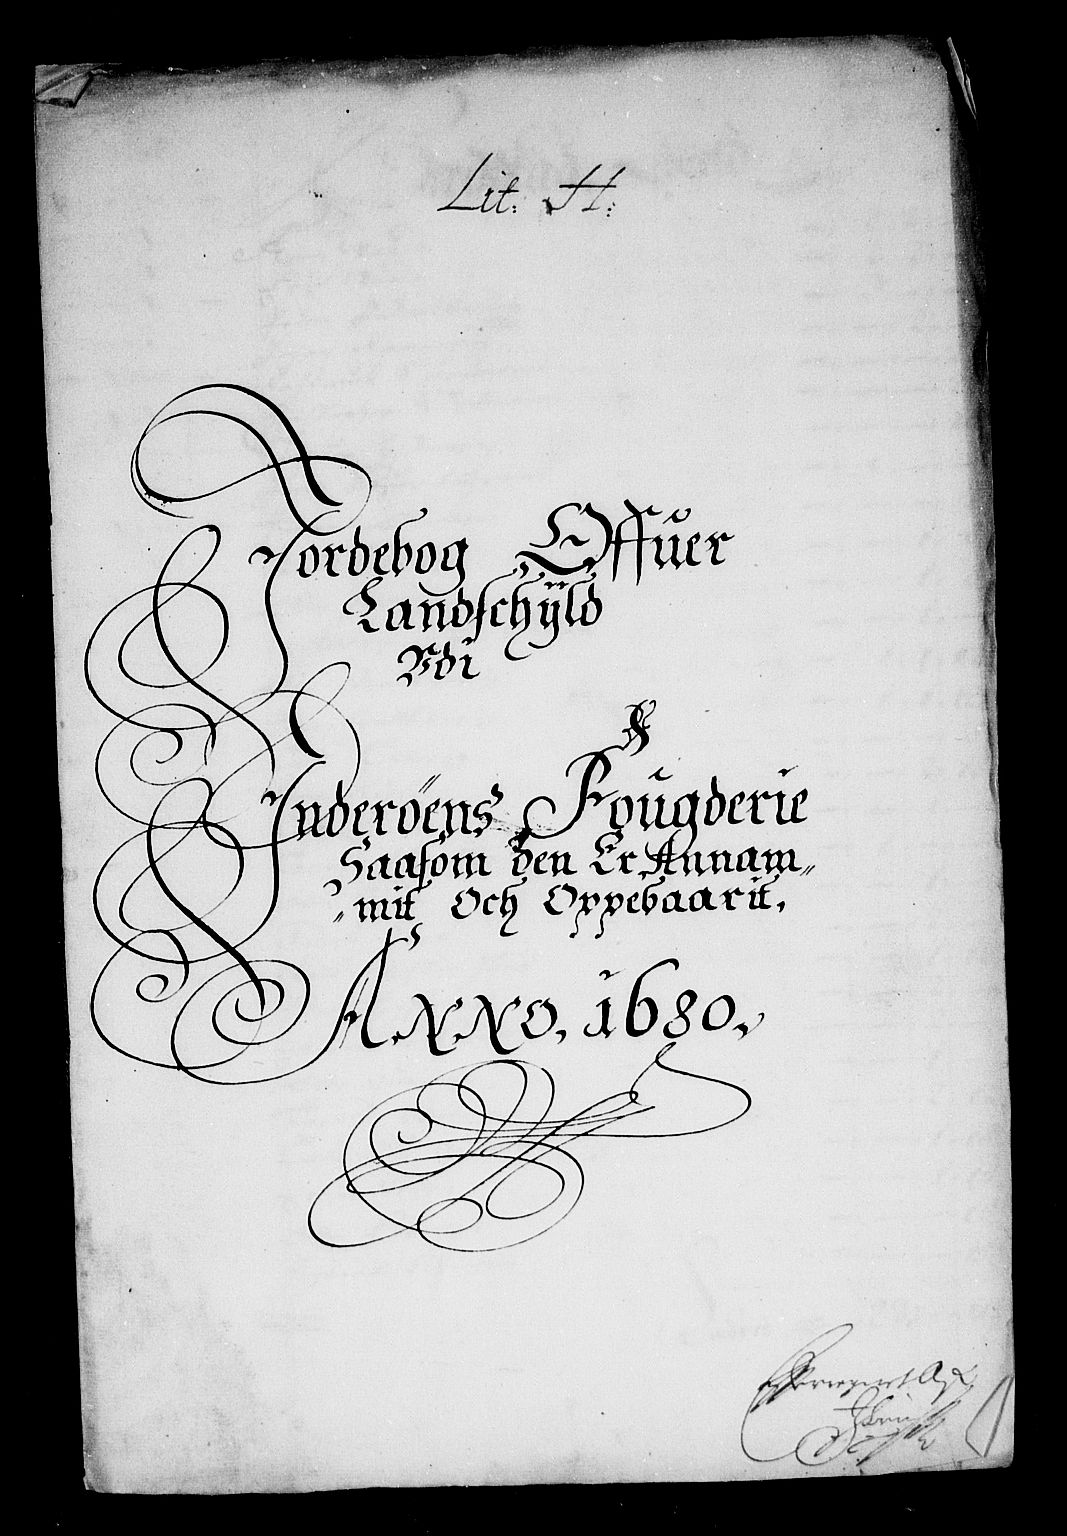 Lit: H:
Jordebog Offuer
Landschÿld
Vdi
Inderöens Fougderie
Saasom den Er Annam„
„mit Och Oppebaarit,
Anno. 1680.